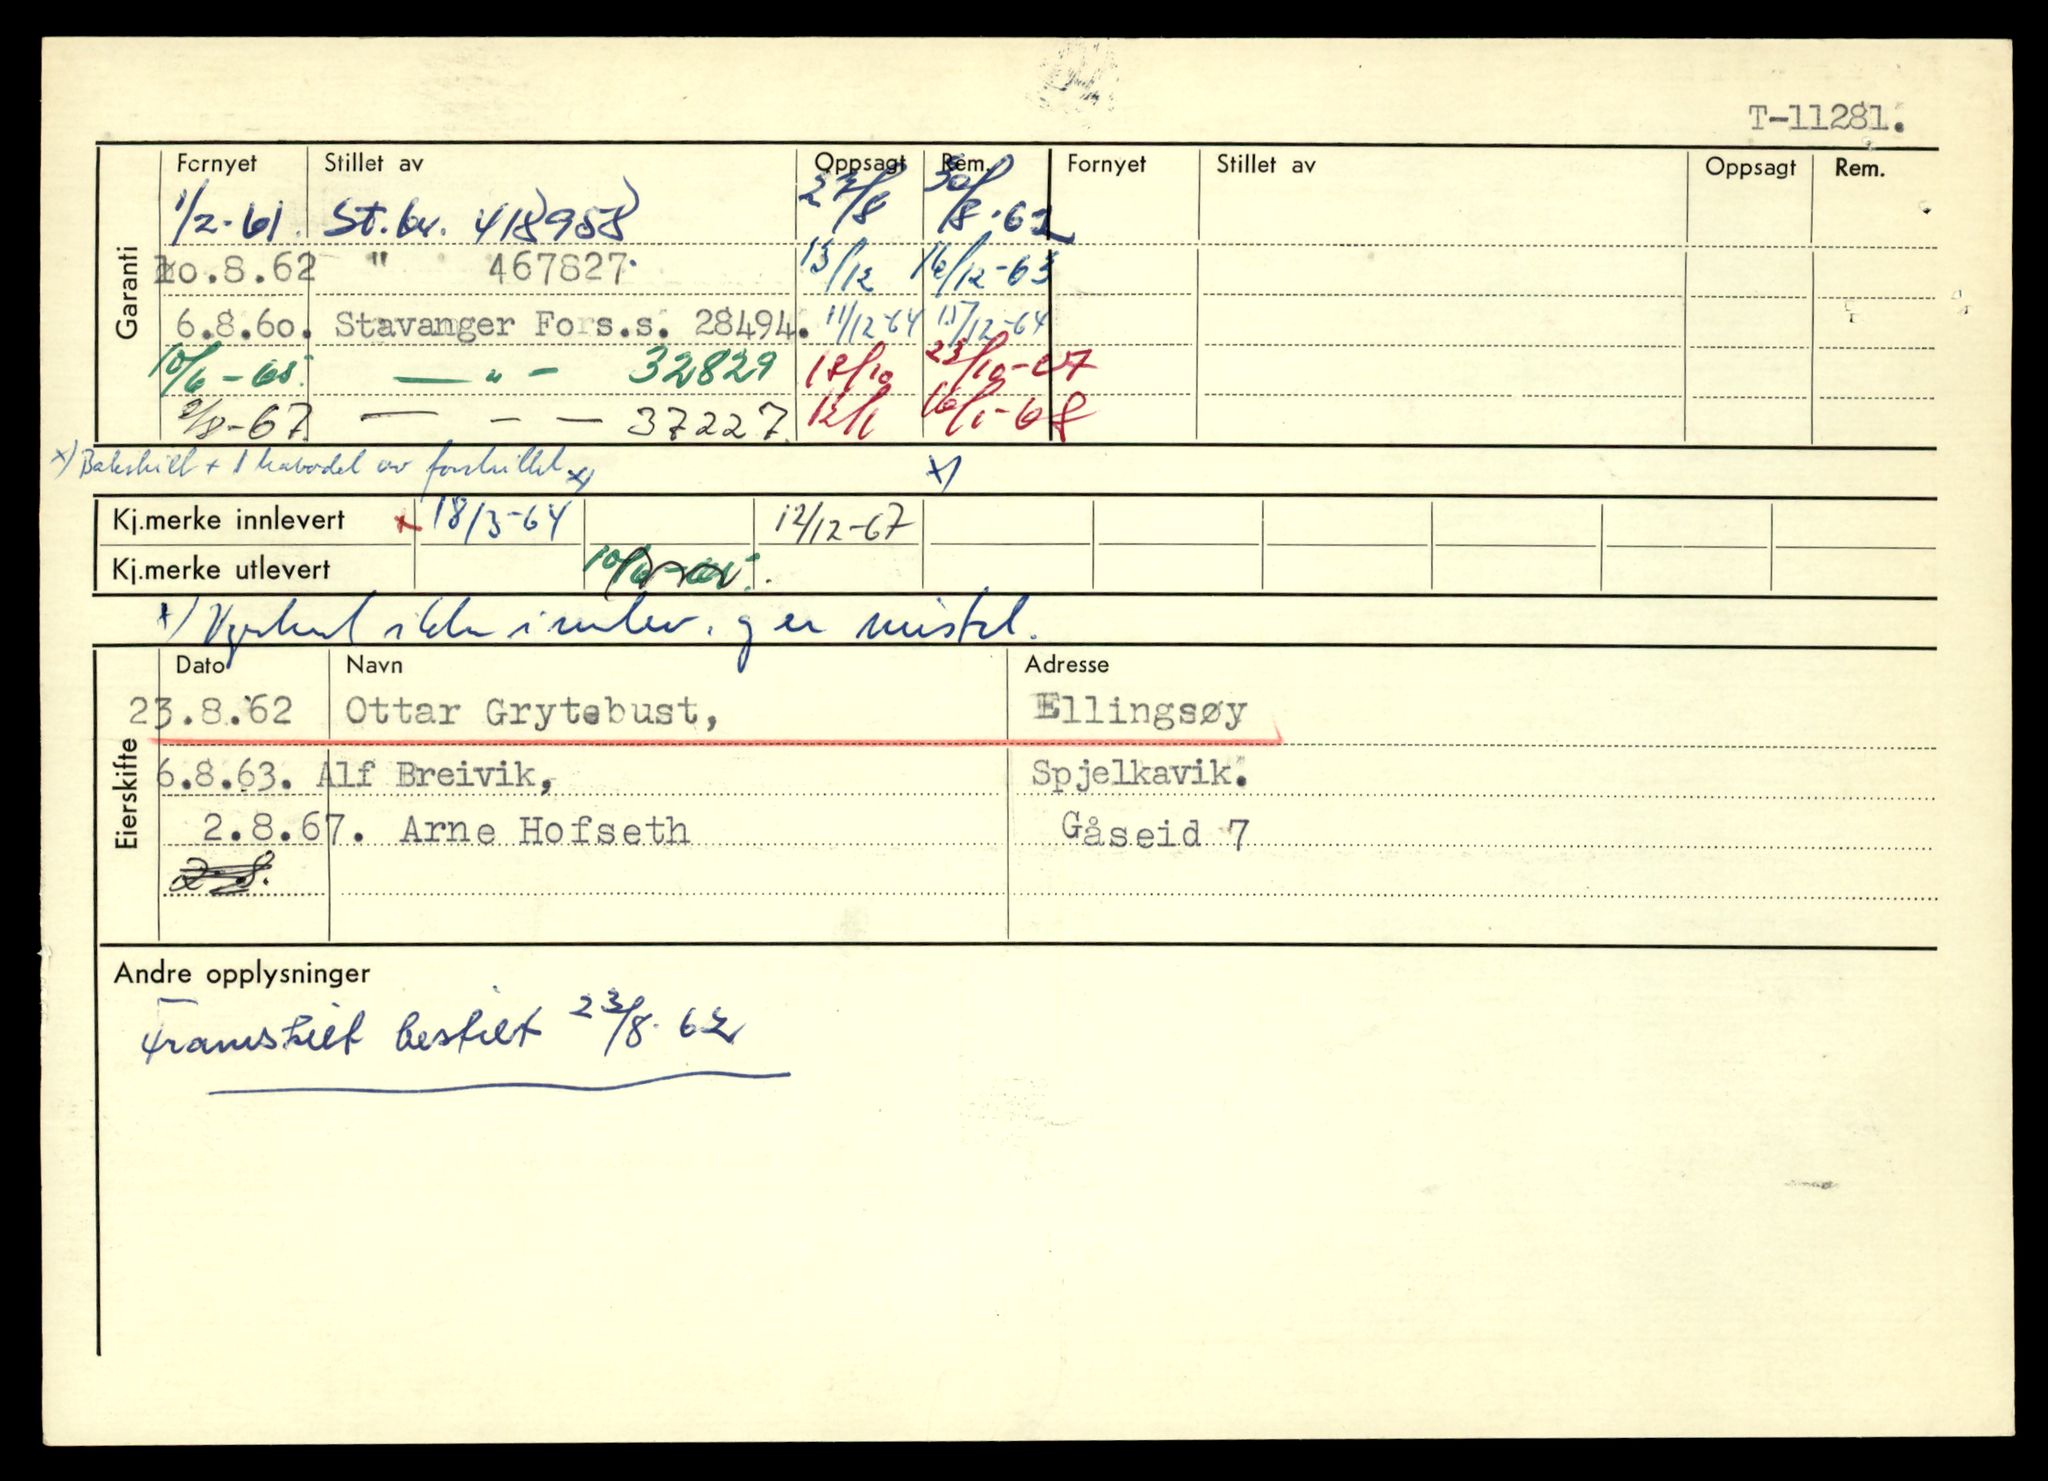 T-11281.
Garanti
Fornyet Stillet av Oppsagt Rem. Fornyet Stillet av Oppsagt Rem.
1/2-61. St.br. 418958 27/8 30/8-62
20.8.62 " 467827. 13/12 16/12-63
6.8.60. Stavanger Fors.s. 28494. 11/12-64 15/12-64
10/6-65. — " — 32829 18/10 23/10-67
2/8-67. — - — 37227. 12/1 16/1-68
x) Bakskilt + 1 av x) x)
Kj.merke innlevert x 18/3-64 12/12-67
Kj.merke utlevert 10/6-65.
x) ikke innlev. er mistet.
Eierskifte
Dato Navn Adresse
23.8.62 Ottar Grytebust, Ellingsøy
6.8.63. Alf Breivik, Spjelkavik.
2.8.67. Arne Hofseth Gåseid 7
2.8.
Andre opplysninger
Framskilt bestilt 23/8-62